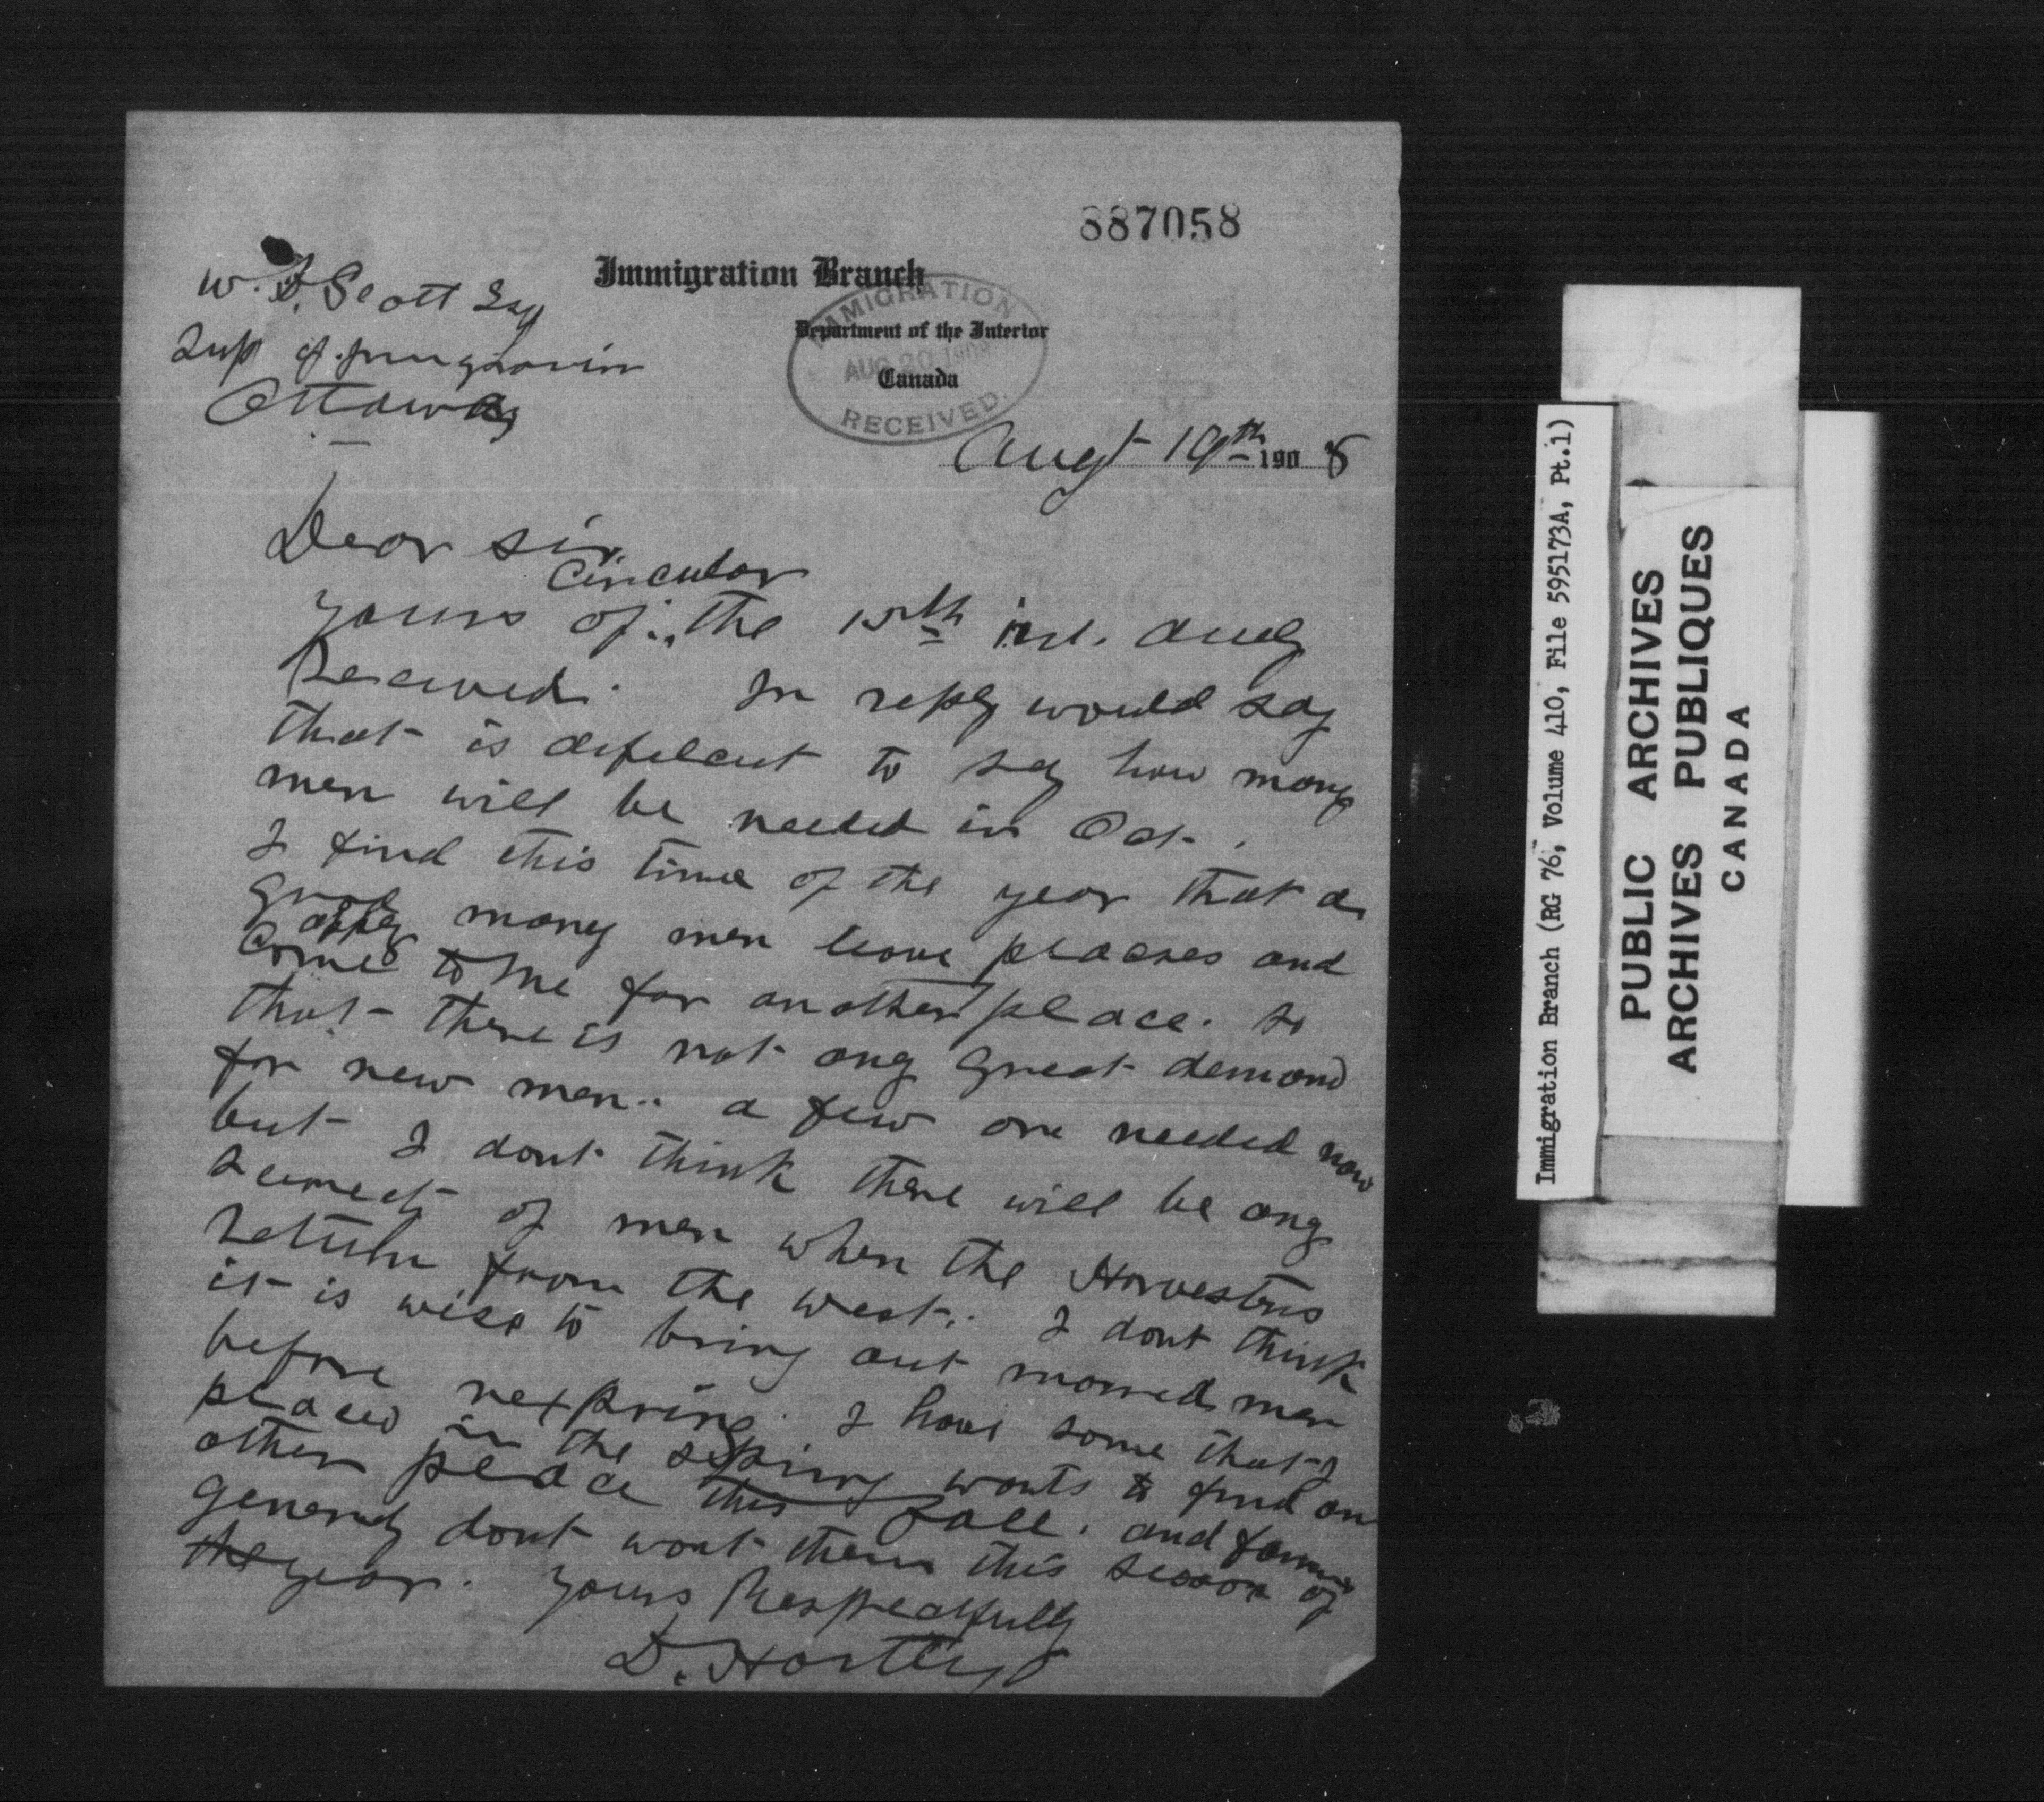 887058
Immigration Branch
Department of the Interior
Canada
IMMIGRATION
AUG 20 1908
RECEIVED.
W. D. Scott Esq
Sup of Immigration
Ottawa
Augt 19th 1908
Dear Sir
Circular
Yours of the 15th inst. duely
Received. In reply would say
that is difelcut to say how many
men will be needed in Oct.
I find this time of the year that a
good many men leave places and
apply
come to me for another place. so
that there is not any Great demand
for new men. a few are needed now
but I dont think there will be any
of men when the Harvesters
return from the west. I dont think
it is wise to bring out married men
before nexpring. I have some that I
placed in the spring wants to find an
other place this Fall. and farmers
generaly dont want them this season of
the year. Yours Respectfully
D. Hartley
Immigration Branch (RG 76, Volume 410, File 595173A, Pt.1)
PUBLIC ARCHIVES
ARCHIVES PUBLIQUES
CANADA